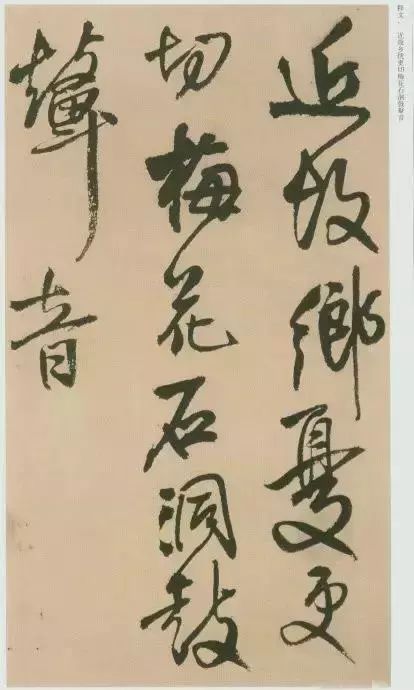 近故鄉憂更
切梅花石洞鼓
鼙音
释文：近故乡忧更切梅花石洞鼓鼙音